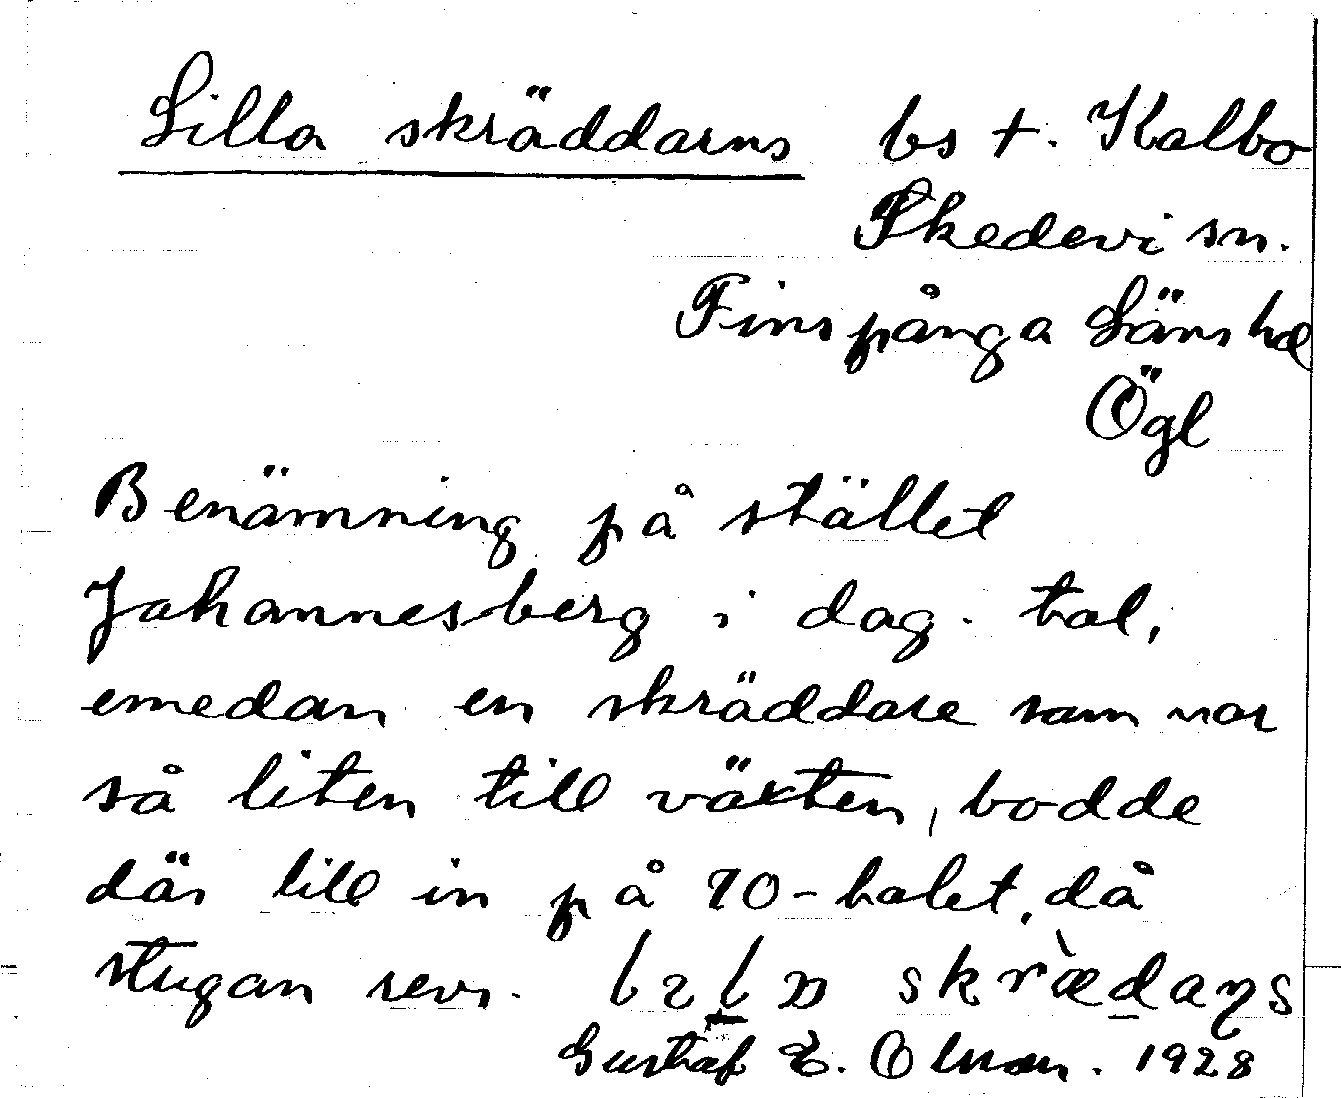 Lilla skräddarns bs t. Kalbo
Skedevi sn.
Finspånga Läns hd
Ögl
Benämning på stället
Johannesberg i dag. tal,
emedan en skräddare som var
så liten till växten, bodde
där till in på 70-talet, då
stugan revs.
Gustaf E. Olman. 1928